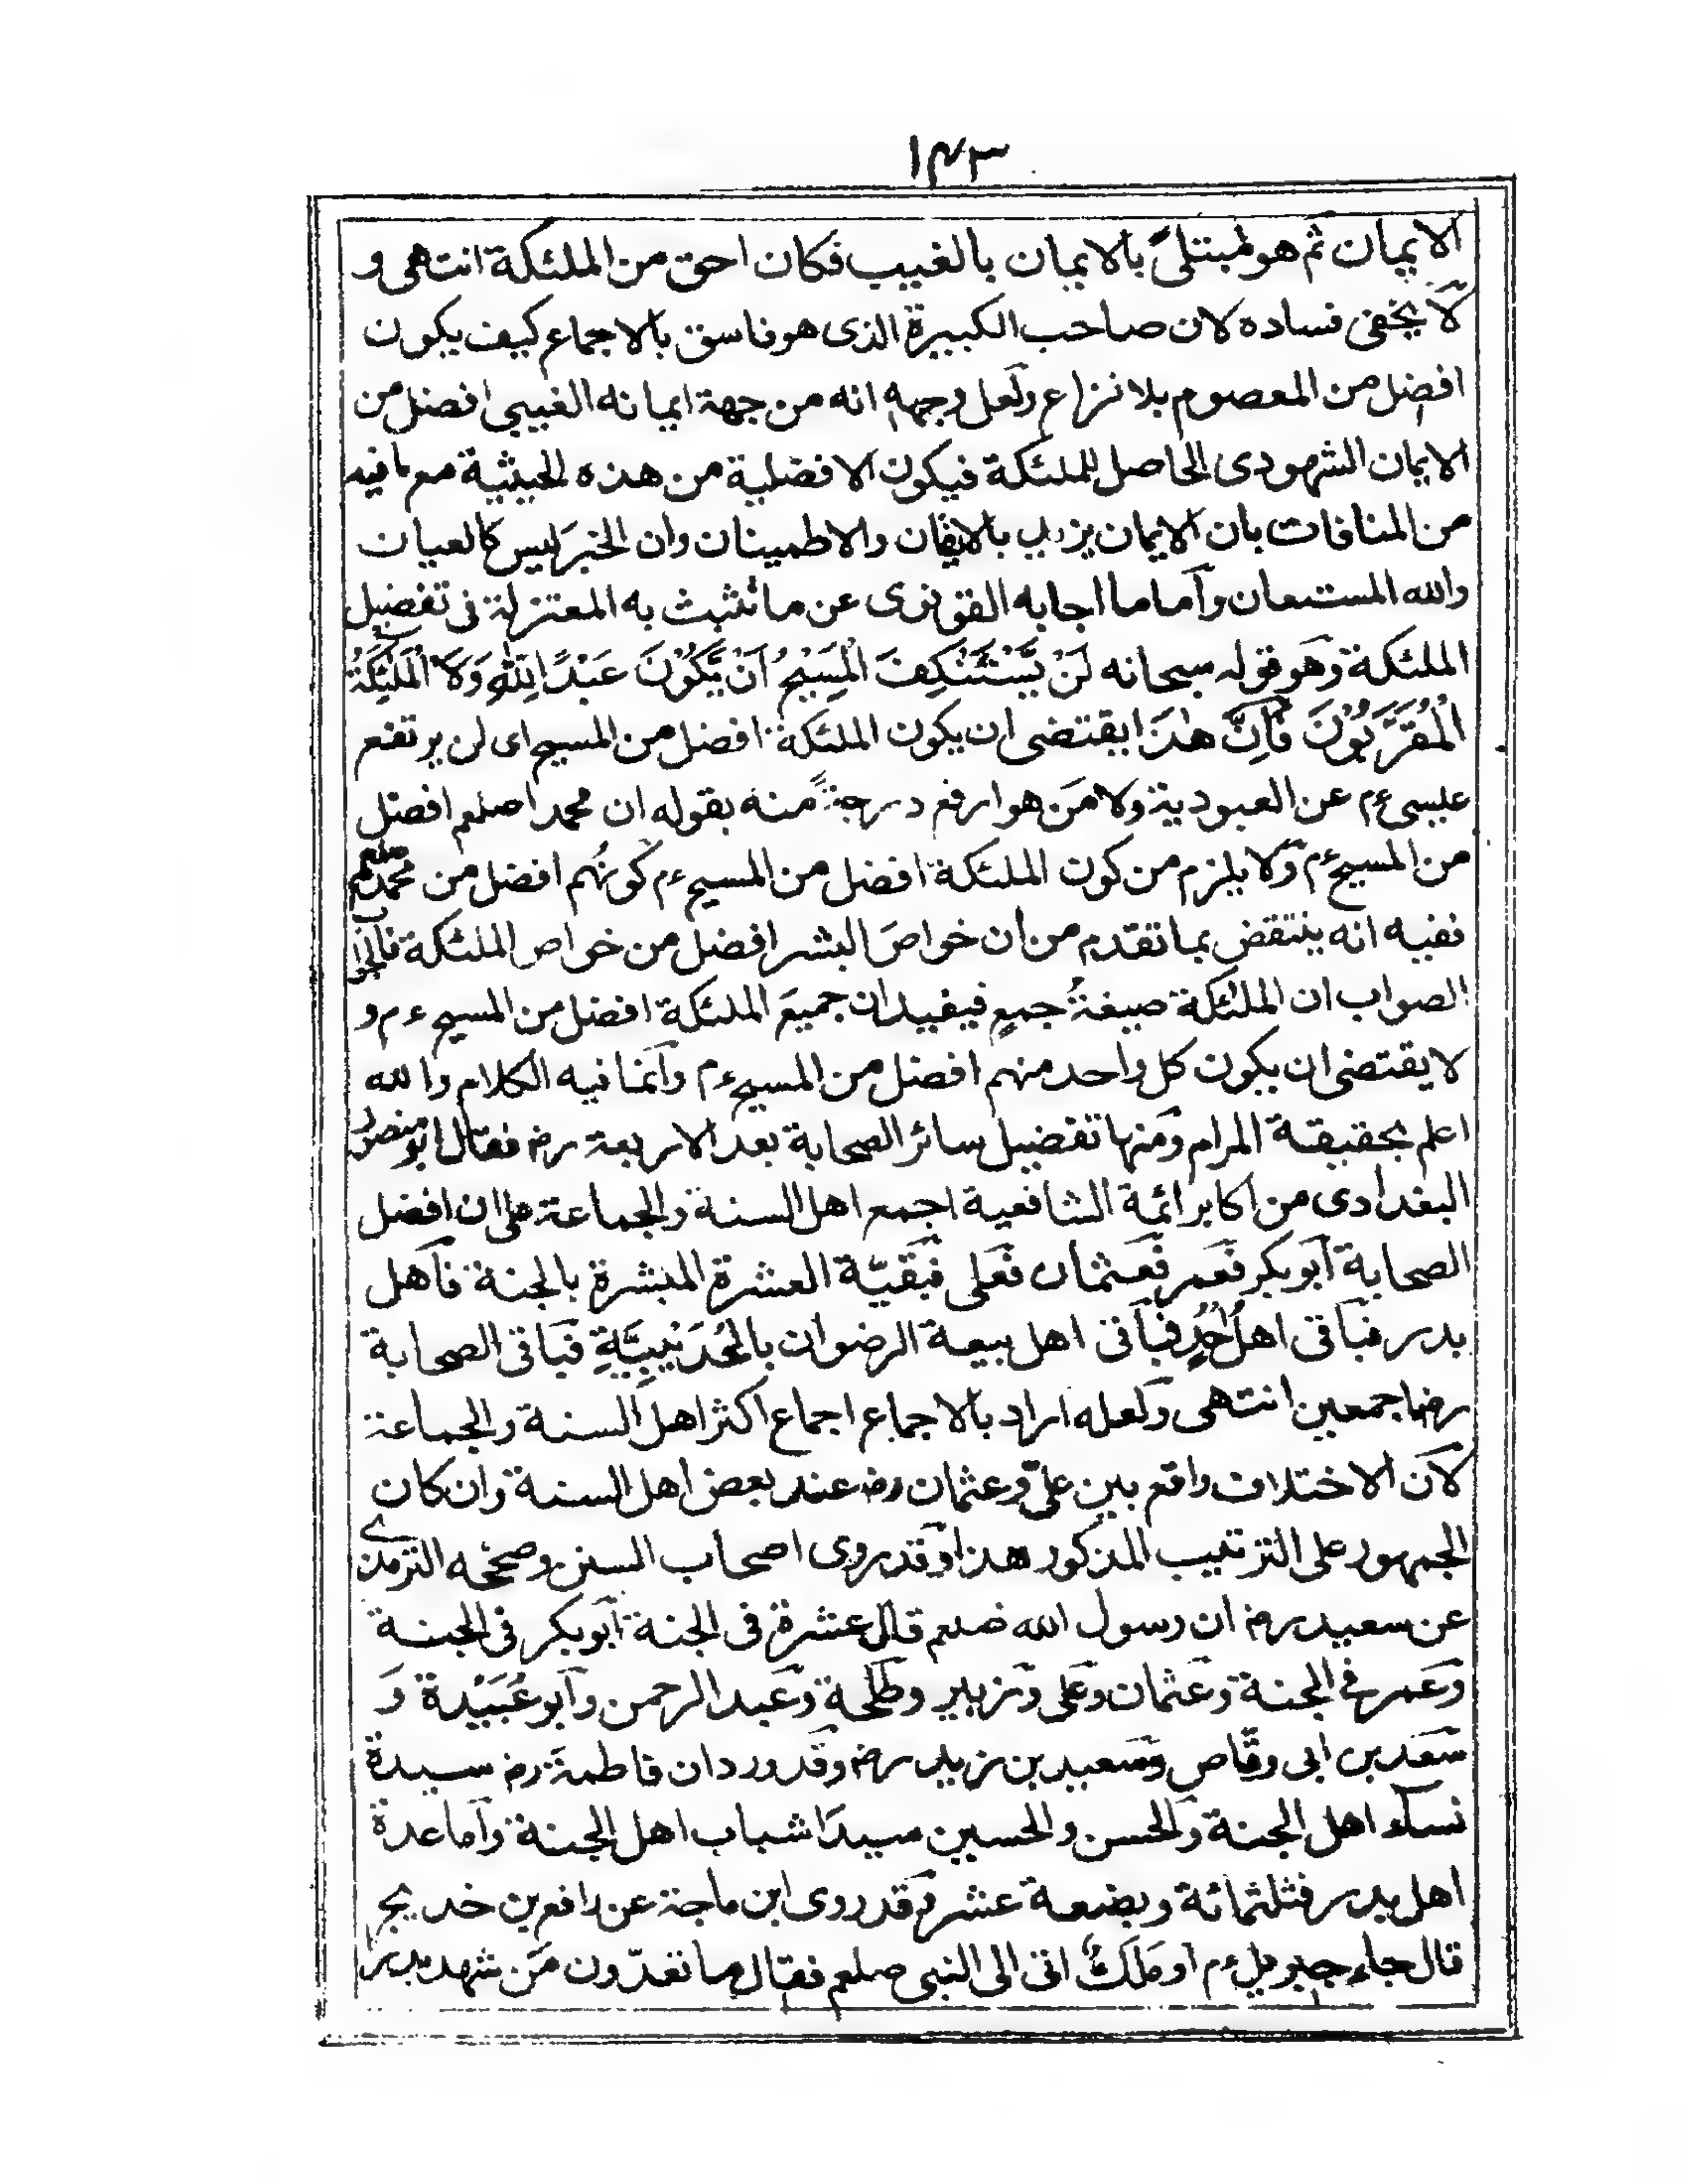 ١٤٣
الايمان ثم هو مبتلىً بالايمان بالغيب فكان احق من الملئكة انتهى و
لا يخفى فساده لان صاحب الكبيرة الذى هو فاسق بالاجماع كيف يكون
افضل من المعصوم بلا نزاع ولعل وجهه انه من جهة ايمانه الغيبى افضل من
الايمان الشهودى الحاصل للملئكة فيكون الافضلية من هذه الحيثية مع ما فيه
من المنافات بان الايمان يزيد بالايقان والاطمينان وان الخبر ليس كالعيان
والله المستعان وآما ما اجابه القونوى عن ما تشبث به المعتزلة فى تفضيل
الملئكة وهو قوله سبحانه لَنْ يَّسْتَنْكِفَ الْمَسِيْحُ اَنْ يَّكُوْنَ عَبْدًا لِلّٰهِ وَلَا الْمَلٰئِكَةُ
الْمُقَرَّبُوْنَ فَاِنَّ هٰذَا يقتضى ان يكون الملئكة افضل من المسيح اى لن يرتفع
عيسى ءم عن العبودية ولا مَن هو ارفع درجةً منه بقوله ان محمدا صلعم افضل
من المسيح ءم ولا يلزم من كون الملئكة افضل من المسيح ءم كونُهم افضل من محمد صلعم
ففيه انه ينتقض بما تقدم من ان خواصَ البشر افضل من خواص الملئكة فالجواب
الصواب ان الملئكة صيغةُ جمعٍ فيفيد ان جميعَ الملئكة افضل من المسيح ءم و
لا يقتضى ان يكون كل واحد منهم افضل من المسيح ءم وانما فيه الكلام والله
اعلم بحقيقة المرام ومنها تفضيل سائر الصحابة بعد الاربعة رض فقال ابو منصور
البغدادى من اكابر ائمة الشافعية اجمع اهل السنة والجماعة على ان افضل
الصحابة ابو بكر فعمر فعثمان فعلى فبقيّة العشرة المبشرة بالجنة فاهل
بدر فباقى اهل اُحُدٍ فباقى اهل بيعة الرضوان بالحُدَيْبِيَّةِ فباقى الصحابة
رض اجمعين انتهى ولعله اراد بالاجماع اجماع اكثر اهل السنة والجماعة
لان الاختلاف واقع بين علىّ وعثمان رض عند بعض اهل السنة وان كان
الجمهور على الترتيب المذكور هذا وقد روى اصحاب السنن وصححه الترمذى
عن سعيد رض ان رسول الله صلعم قال عشرة فى الجنة ابو بكر فى الجنة
وعمر فى الجنة وعثمان وعلى وزبير وطلحة وعبد الرحمن وابو عُبَيْدة وَ
سعد بن ابى وقّاص وسعيد بن زيد رض وقد ورد ان فاطمة رض سيدة
نساء اهل الجنة والحسن والحسين سيدا شباب اهل الجنة وآما عدة
اهل بدر فثلثمائة وبضعة عشر وقد روى ابن ماجة عن رافع بن خديج
قال جاء جبريل ءم او مَلَكٌ اتى الى النبى صلعم فقال ما تعدّون مَن شهد بدر